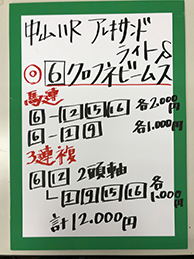 中山11R アレキサンドライトS
◎ 6 クロフネビームス
馬連
6 - 12 15 16 各2,000円
6 - 1 9 各1,000円
3連複
6 12 2頭軸
1 9 15 16 各1,000円
計12,000円